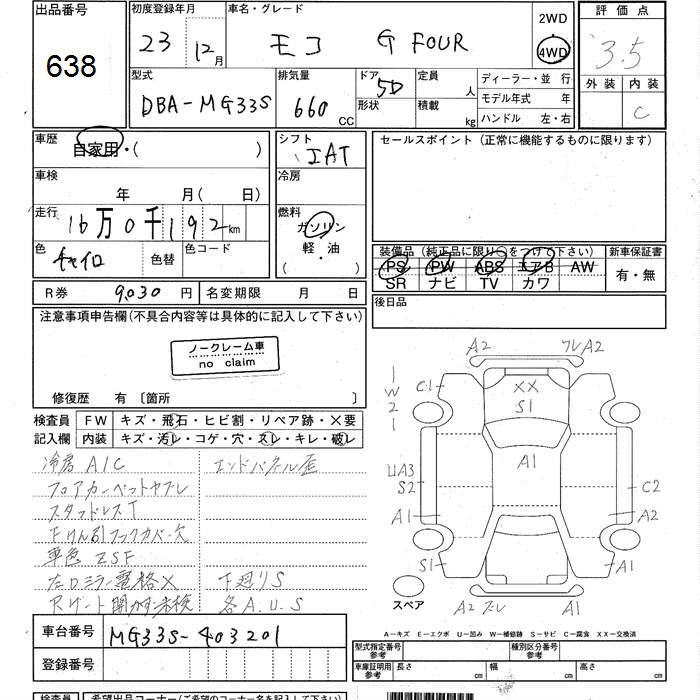 出品番号
638
初度登録年月
23 12月
車名・グレード
モコ G FOUR
2WD
4WD
評価点
3.5
外装 内装
C
型式
DBA-MG33S
排気量
660 CC
ドア 5D
形状
定員 人
積載 kg
ディーラー・並 行
モデル年式 年
ハンドル 左・右
車歴
自家用・( )
シフト
IAT
セールスポイント (正常に機能するものに限ります)
車検
年 月( 日)
冷房
走行
16万0千192km
燃料
ガソリン
軽・油
( )
色
チャイロ
色替
色コード
装備品 (純正品に限り○をつけて下さい)
PS PW ABS エアB AW
SR ナビ TV カワ
新車保証書
有・無
R券 9,030 円
名変期限 月 日
後日品
注意事項申告欄(不具合内容等は具体的に記入して下さい)
ノークレーム車
no claim
修復歴 有 〔箇所 〕
検査員
記入欄
FW キズ・飛石・ヒビ割・リペア跡・×要
内装 キズ・汚レ・コゲ・穴・スレ・キレ・破レ
冷房 A/C
エンドパネル歪
フロアカーペットヤブレ
スタッドレスT
Fけん引フックカバー欠
車色 ZSF
左ドミラー電格×
下廻りS
Rゲート開かず未検
各A.U.S
A2
フレA2
C1
W21
XX
S1
A1
UA3
S2
A1
C2
A2
S1
A1
A2 ズレ
A1
スペア
A-キズ E-エクボ U-凹み W-補修跡 S-サビ C-腐食 XX-交換済
車台番号
MG33S-403201
登録番号
型式指定番号
参考
種別区分番号
参考
車庫証明用
参考
長さ cm
幅 cm
高さ cm
検査員
希望出品コーナー(ご希望のコーナー名を記入下さい)